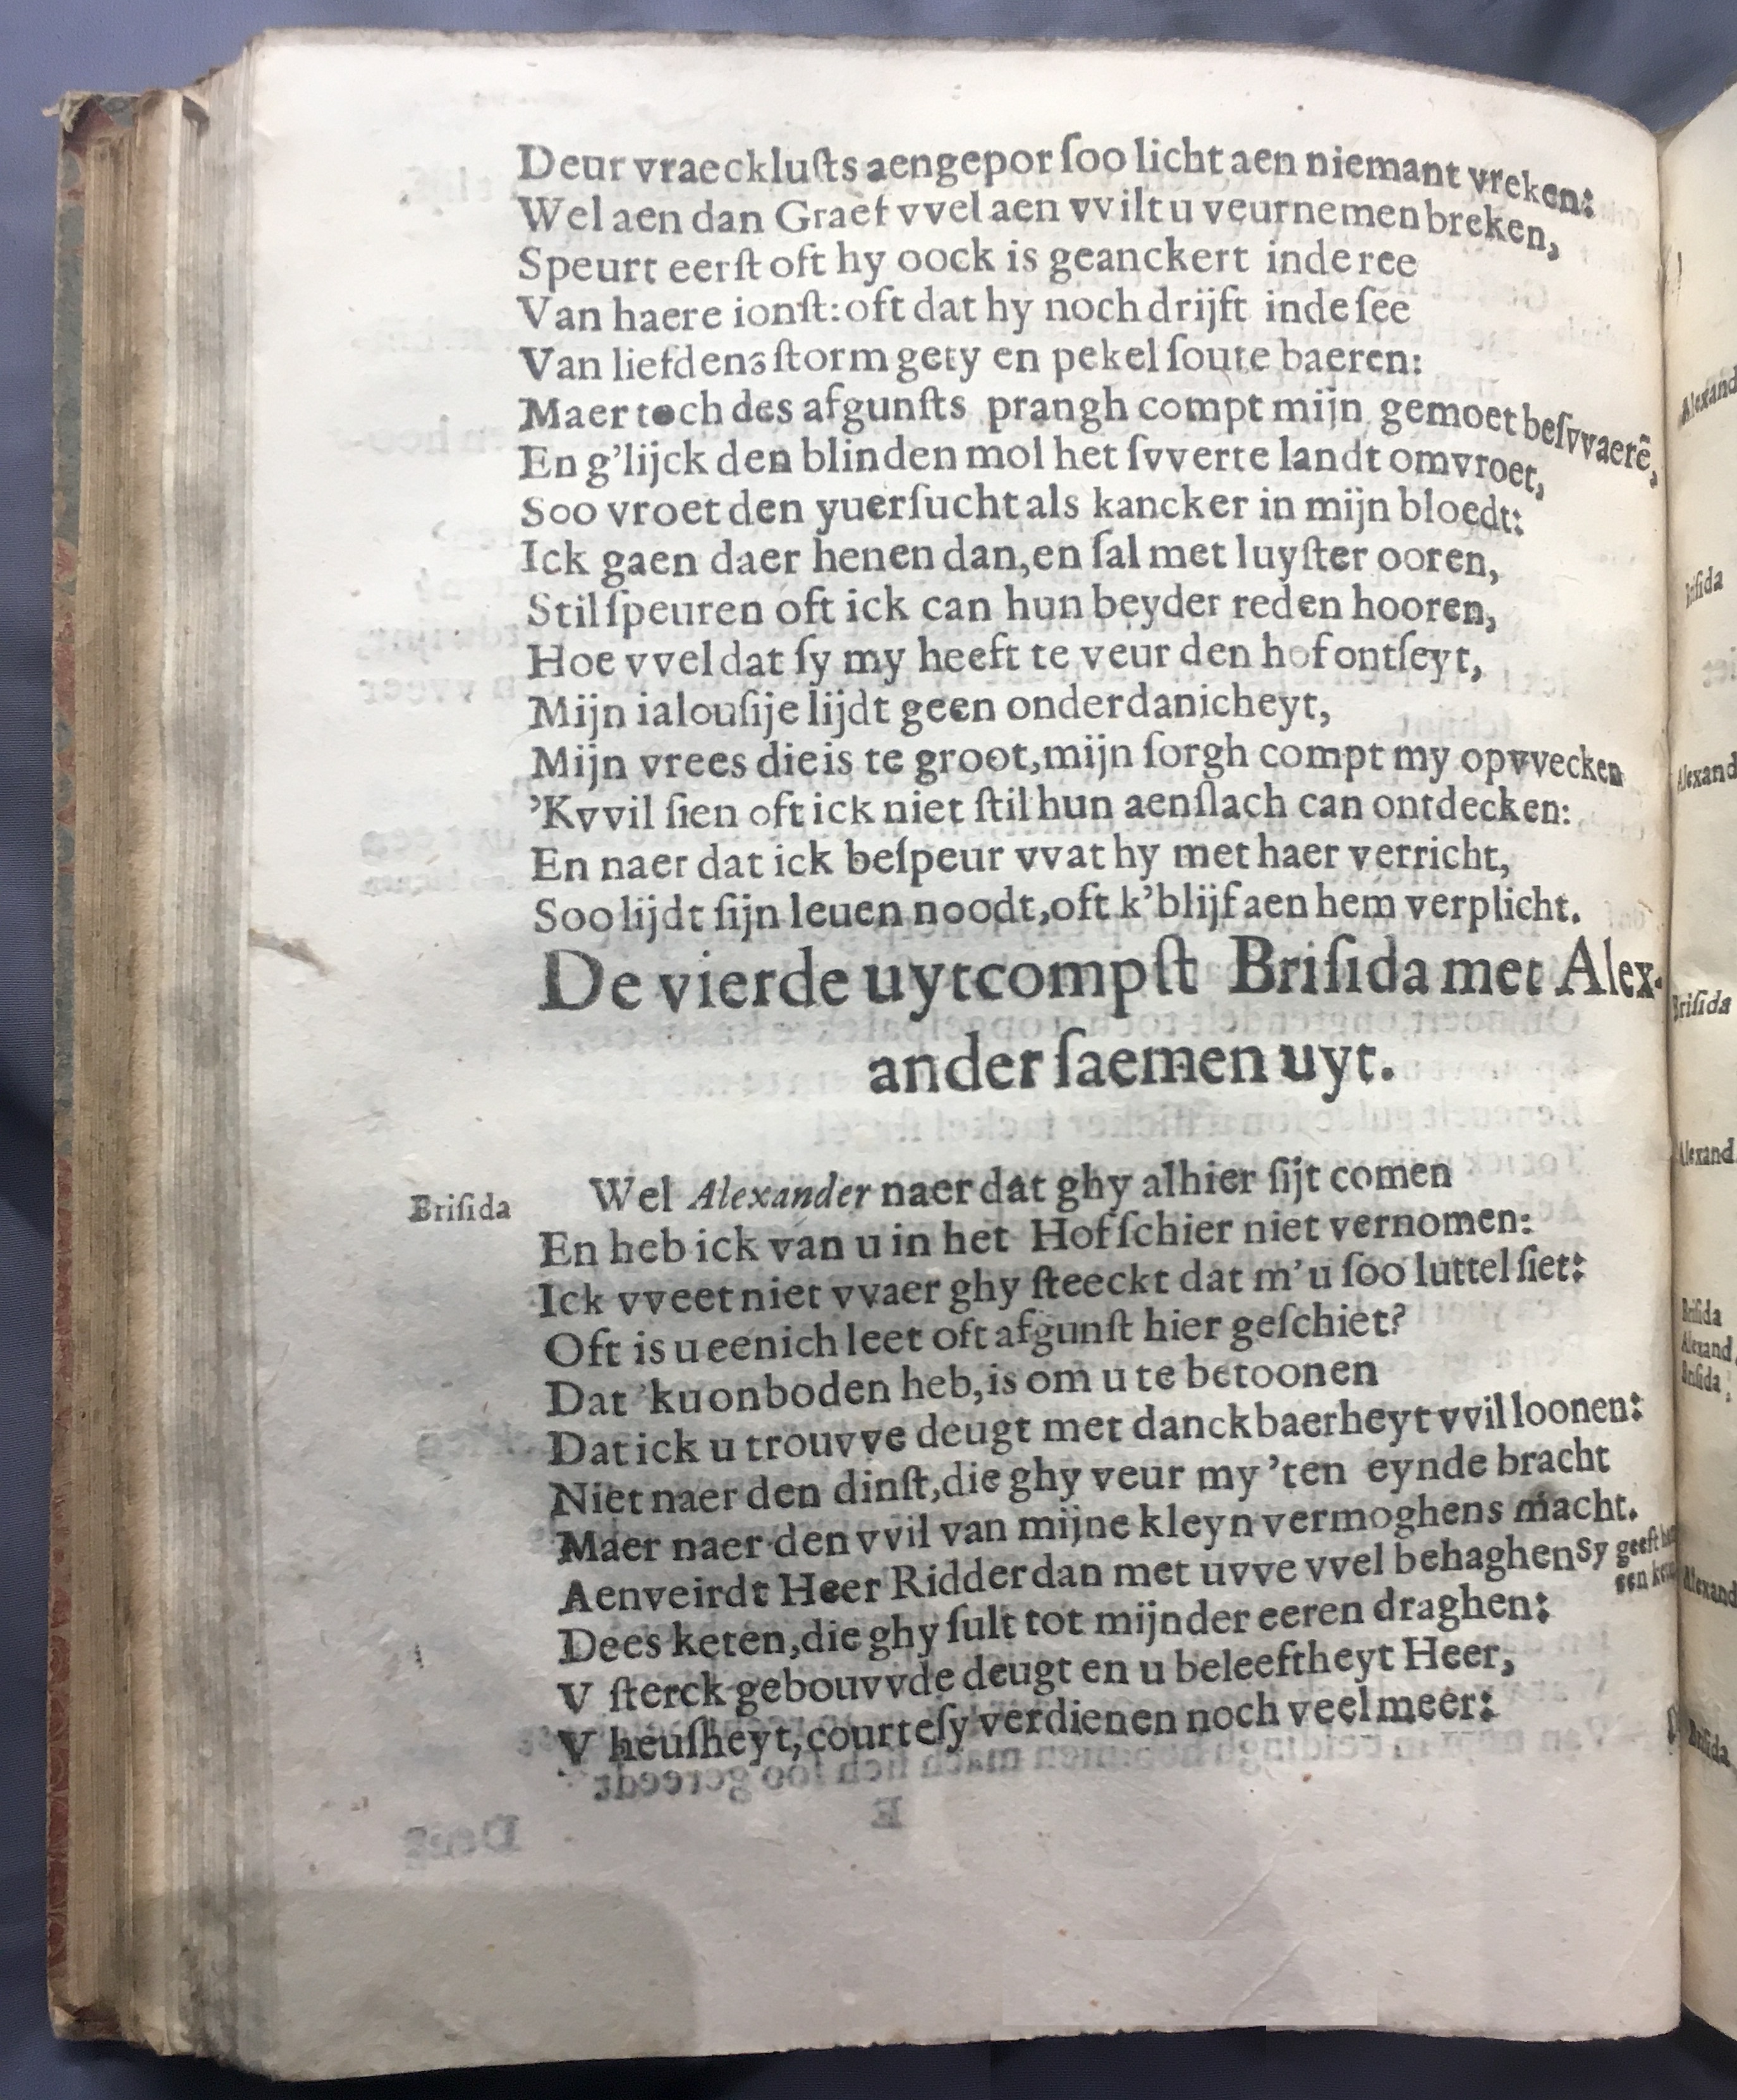 Deur vraecklusts aengepor soo licht aen niemant vreken:
Wel aen dan Graef vvel aen vvilt u veurnemen breken,
Speurt eerst oft hy oock is geanckert inde ree
Van haere ionst: oft dat hy noch drijft inde see
Van liefdens storm gety en pekel soute baeren:
Maer toch des afgunsts prangh compt mijn gemoet besvvaerē,
En g'lijck den blinden mol het svverte landt omvroet,
Soo vroet den yuersucht als kancker in mijn bloedt:
Ick gaen daer henen dan, en sal met luyster ooren,
Stil speuren oft ick can hun beyder reden hooren,
Hoe vvel dat sy my heeft te veur den hof ontseyt,
Mijn ialousije lijdt geen onderdanicheyt,
Mijn vrees die is te groot, mijn sorgh compt my opvvecken
'Kvvil sien oft ick niet stil hun aenslach can ontdecken:
En naer dat ick bespeur vvat hy met haer verricht,
Soo lijdt sijn leuen noodt, oft k'blijf aen hem verplicht.
De vierde uytcompst Brisida met Alex-
ander saemen uyt.
Brisida Wel Alexander naer dat ghy alhier sijt comen
En heb ick van u in het Hof schier niet vernomen:
Ick vveet niet vvaer ghy steeckt dat m'u soo luttel siet:
Oft is u eenich leet oft afgunst hier geschiet?
Dat 'ku onboden heb, is om u te betoonen
Dat ick u trouvve deugt met danckbaerheyt vvil loonen:
Niet naer den dinst, die ghy veur my 'ten eynde bracht
Maer naer den vvil van mijne kleyn vermoghens macht.
Aenveirdt Heer Ridder dan met uvve vvel behaghen Sy geeft
een
Dees keten, die ghy sult tot mijnder eeren draghen:
V sterck gebouvvde deugt en u beleeftheyt Heer,
V heusheyt, courtesy verdienen noch veel meer:
Alexand
Brisida
Alexand
Brisida
Alexand
Brisida
Alexand
Brisida
Alexand
Brisida